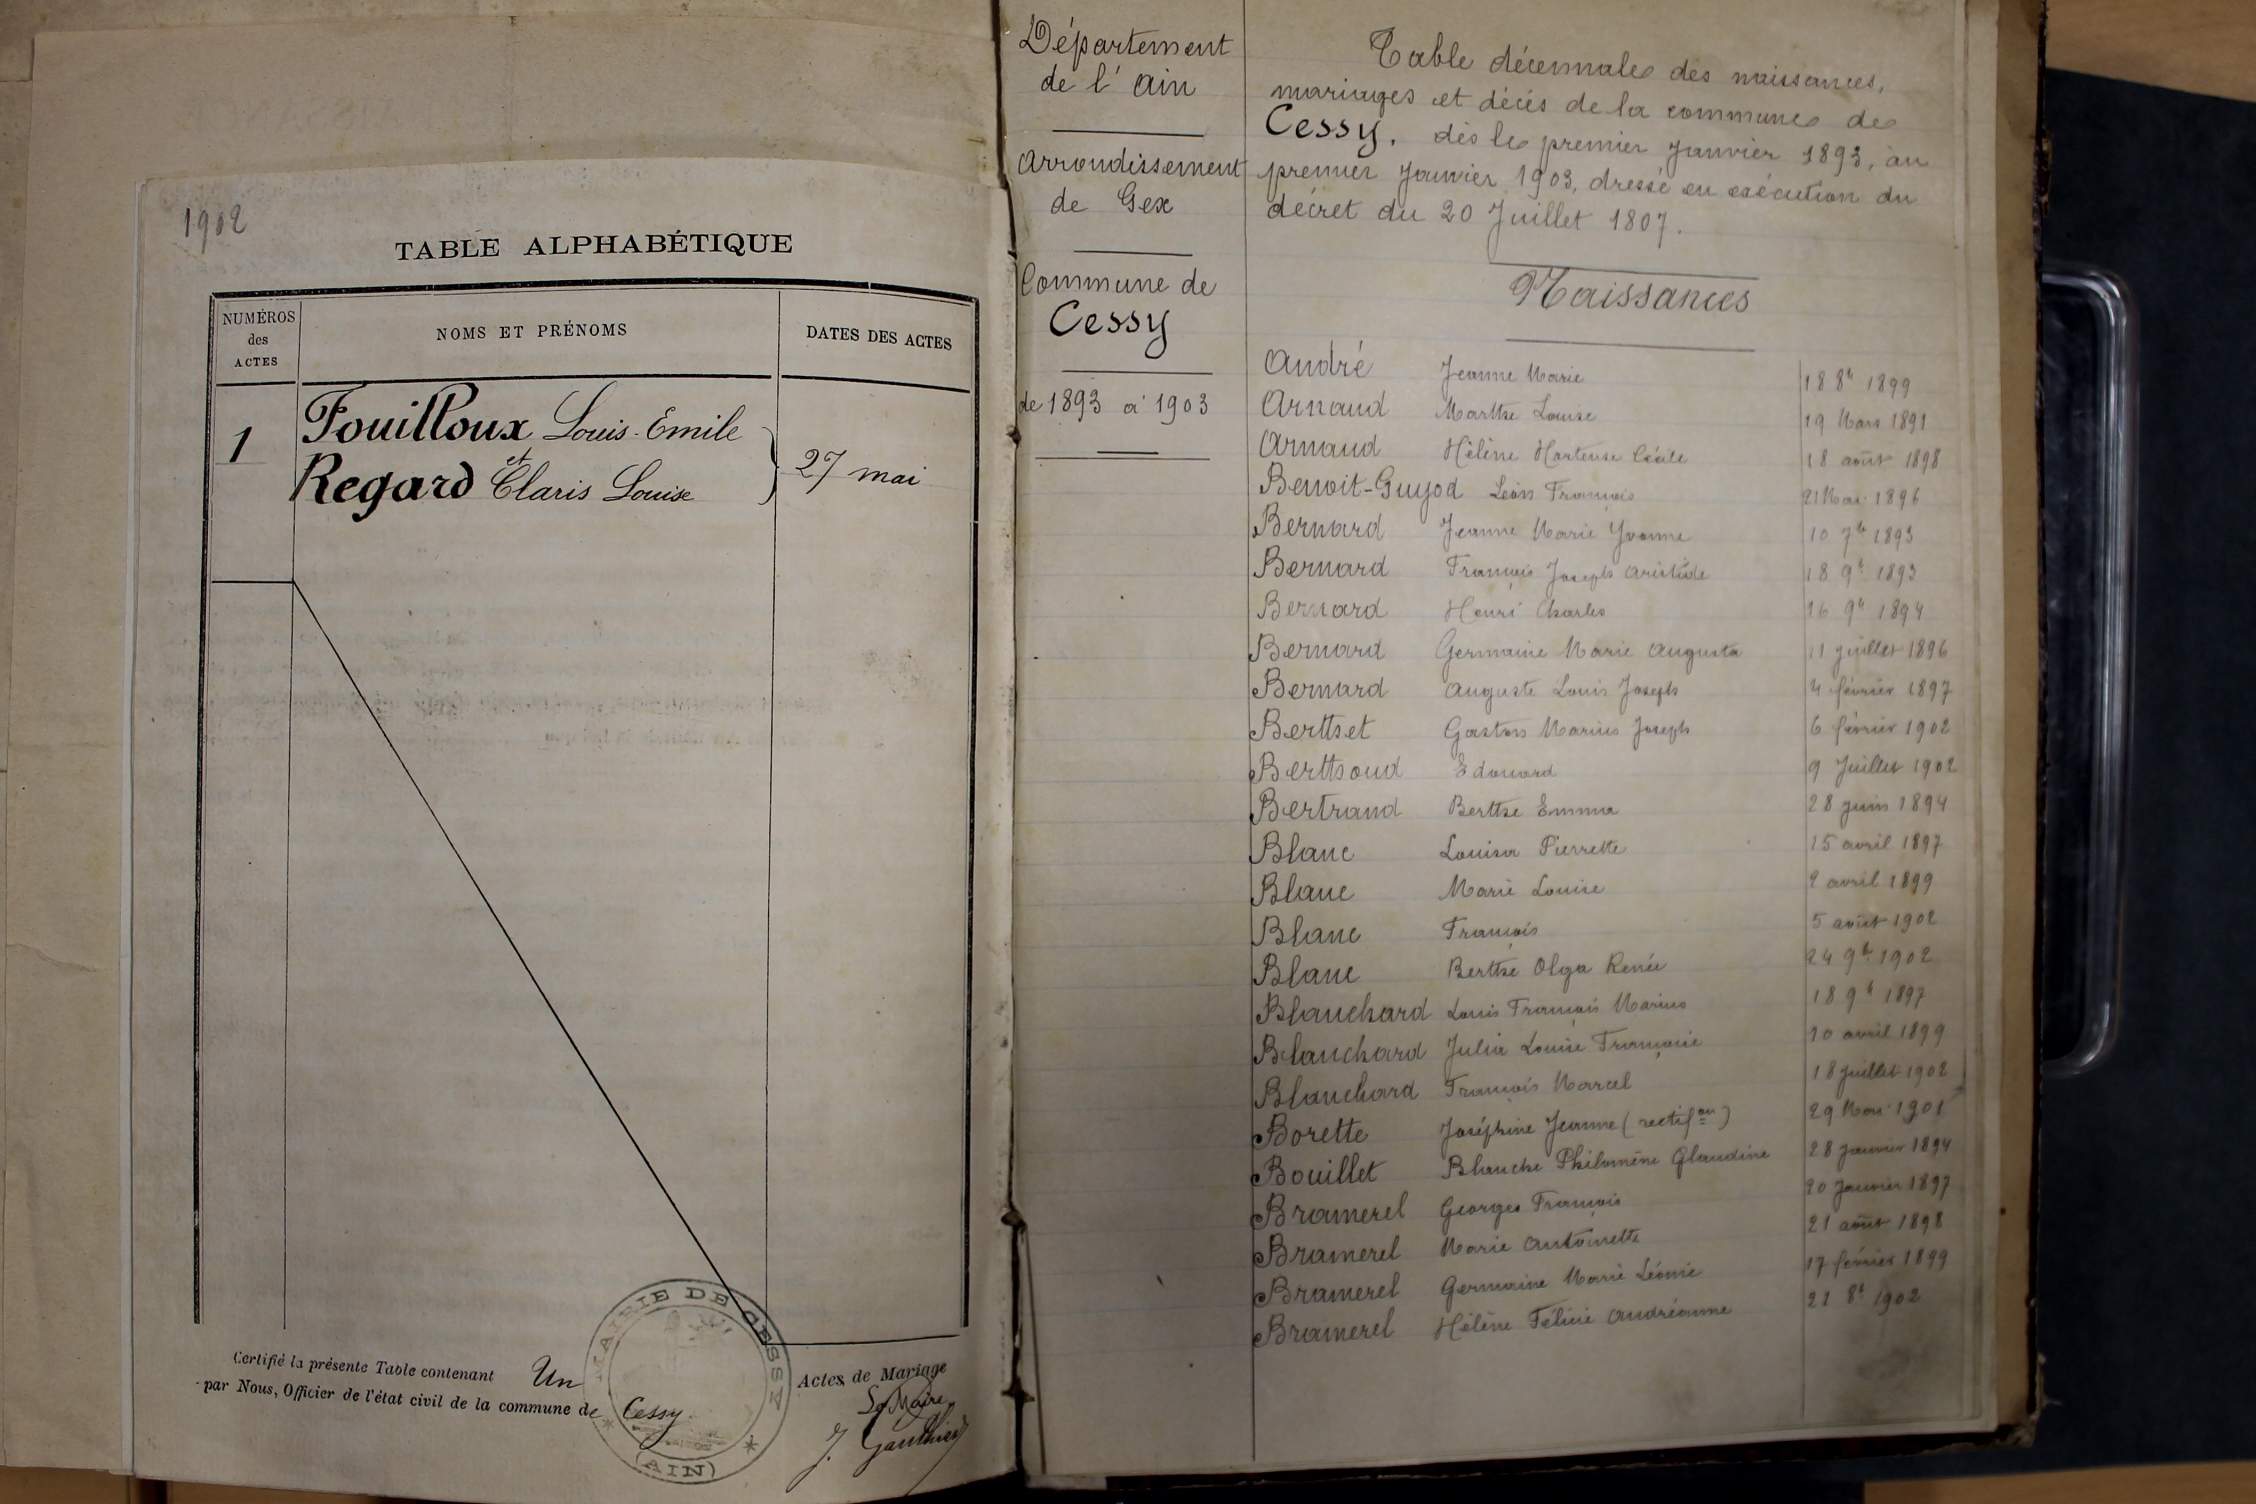 1902
TABLE ALPHABÉTIQUE
NUMÉROS
des
ACTES
NOMS ET PRÉNOMS
DATES DES ACTES
1
Fouilloux Louis-Emile
et
Regard Claris Louise
27 mai
Certifié la présente Table contenant Un Actes de Mariage
par Nous, Officier de l'état civil de la commune de Cessy.
Le Maire
J. Gauthier
MAIRIE DE CESSY
(AIN)
Département
de l'Ain
Arrondissement
de Gex
Commune de
Cessy
de 1893 à 1903
Table décennale des naissances,
mariages et décés de la commune de
Cessy. dès le premier Janvier 1893, au
premier Janvier 1903, dressé en exécution du
décret du 20 Juillet 1807.
Naissances
André Jeanne Marie 18 8b 1899
Arnaud Marthe Louise 19 Mars 1891
Arnaud Hélène Hortense Cécile 18 août 1898
Benoit-Guyod Léon François 21 Mai 1896
Bernard Jeanne Marie Yvonne 10 7b 1893
Bernard François Joseph Aristide 18 9b 1893
Bernard Henri Charles 16 9b 1894
Bernard Germaine Marie Augusta 11 juillet 1896
Bernard Auguste Louis Joseph 4 février 1897
Berthet Gaston Marius Joseph 6 février 1902
Berthoud Edouard 9 Juillet 1902
Bertrand Berthe Emma 28 juin 1894
Blanc Louisa Pierrette 15 avril 1897
Blanc Marie Louise 2 avril 1899
Blanc François 5 août 1902
Blanc Berthe Olga Renée 24 9b 1902
Blanchard Louis François Marius 18 9b 1897
Blanchard Julia Louise Françoise 10 avril 1899
Blanchard François Marcel 18 juillet 1902
Borette Joséphine Jeanne (rectifon) 29 Mai 1901
Bouillet Blanche Philomène Glaudine 28 janvier 1894
Bramerel Georges François 20 Janvier 1897
Bramerel Marie Antoinette 21 août 1898
Bramerel Germaine Marie Léonie 17 février 1899
Bramerel Hélène Félicie Andréanne 21 8b 1902